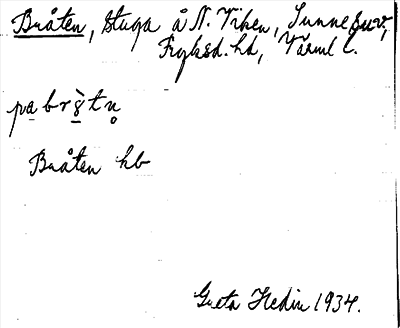 Bråten, stuga å N. Viken, Sunne sn,
Fryksd. hd, Värml l.
pa brṣ̀tn̥
Bråten hb
Greta Hedin 1934.